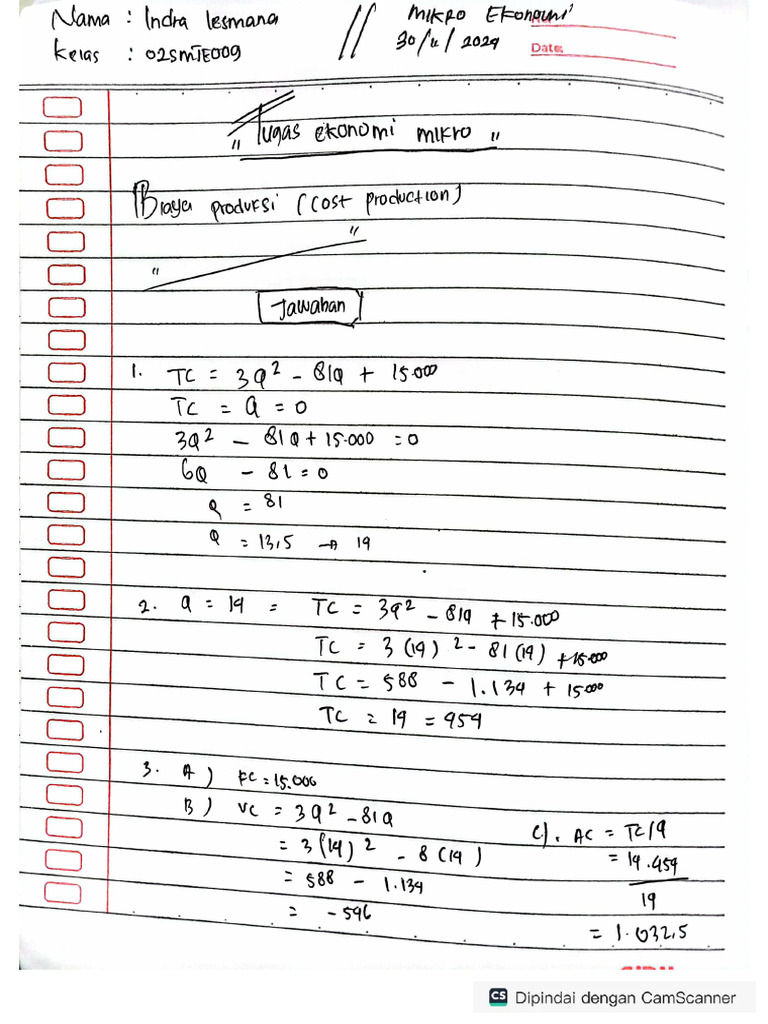 Nama : Indra lesmana // MIKRO EKONOMI
Kelas : 02SMJE009 30/4/2024 Date:
" Tugas ekonomi mikro "
Biaya produksi (cost production)
" "
Jawaban
1. TC = 3Q² - 81Q + 15.000
TC = Q = 0
3Q² - 81Q + 15.000 = 0
6Q - 81 = 0
Q = 81
Q = 13,5 → 14
2. Q = 14 = TC = 3Q² - 81Q + 15.000
TC = 3 (14) 2 - 81 (14) + 15.000
TC = 588 - 1.134 + 15000
TC = 14 = 954
3. A) FC = 15.000
B) VC = 3Q² - 81Q
= 3 (14) 2 - 8 (14)
= 588 - 1.134
= - 596
C). AC = TC/Q
= 14.454
14
= 1.032,5
CS Dipindai dengan CamScanner